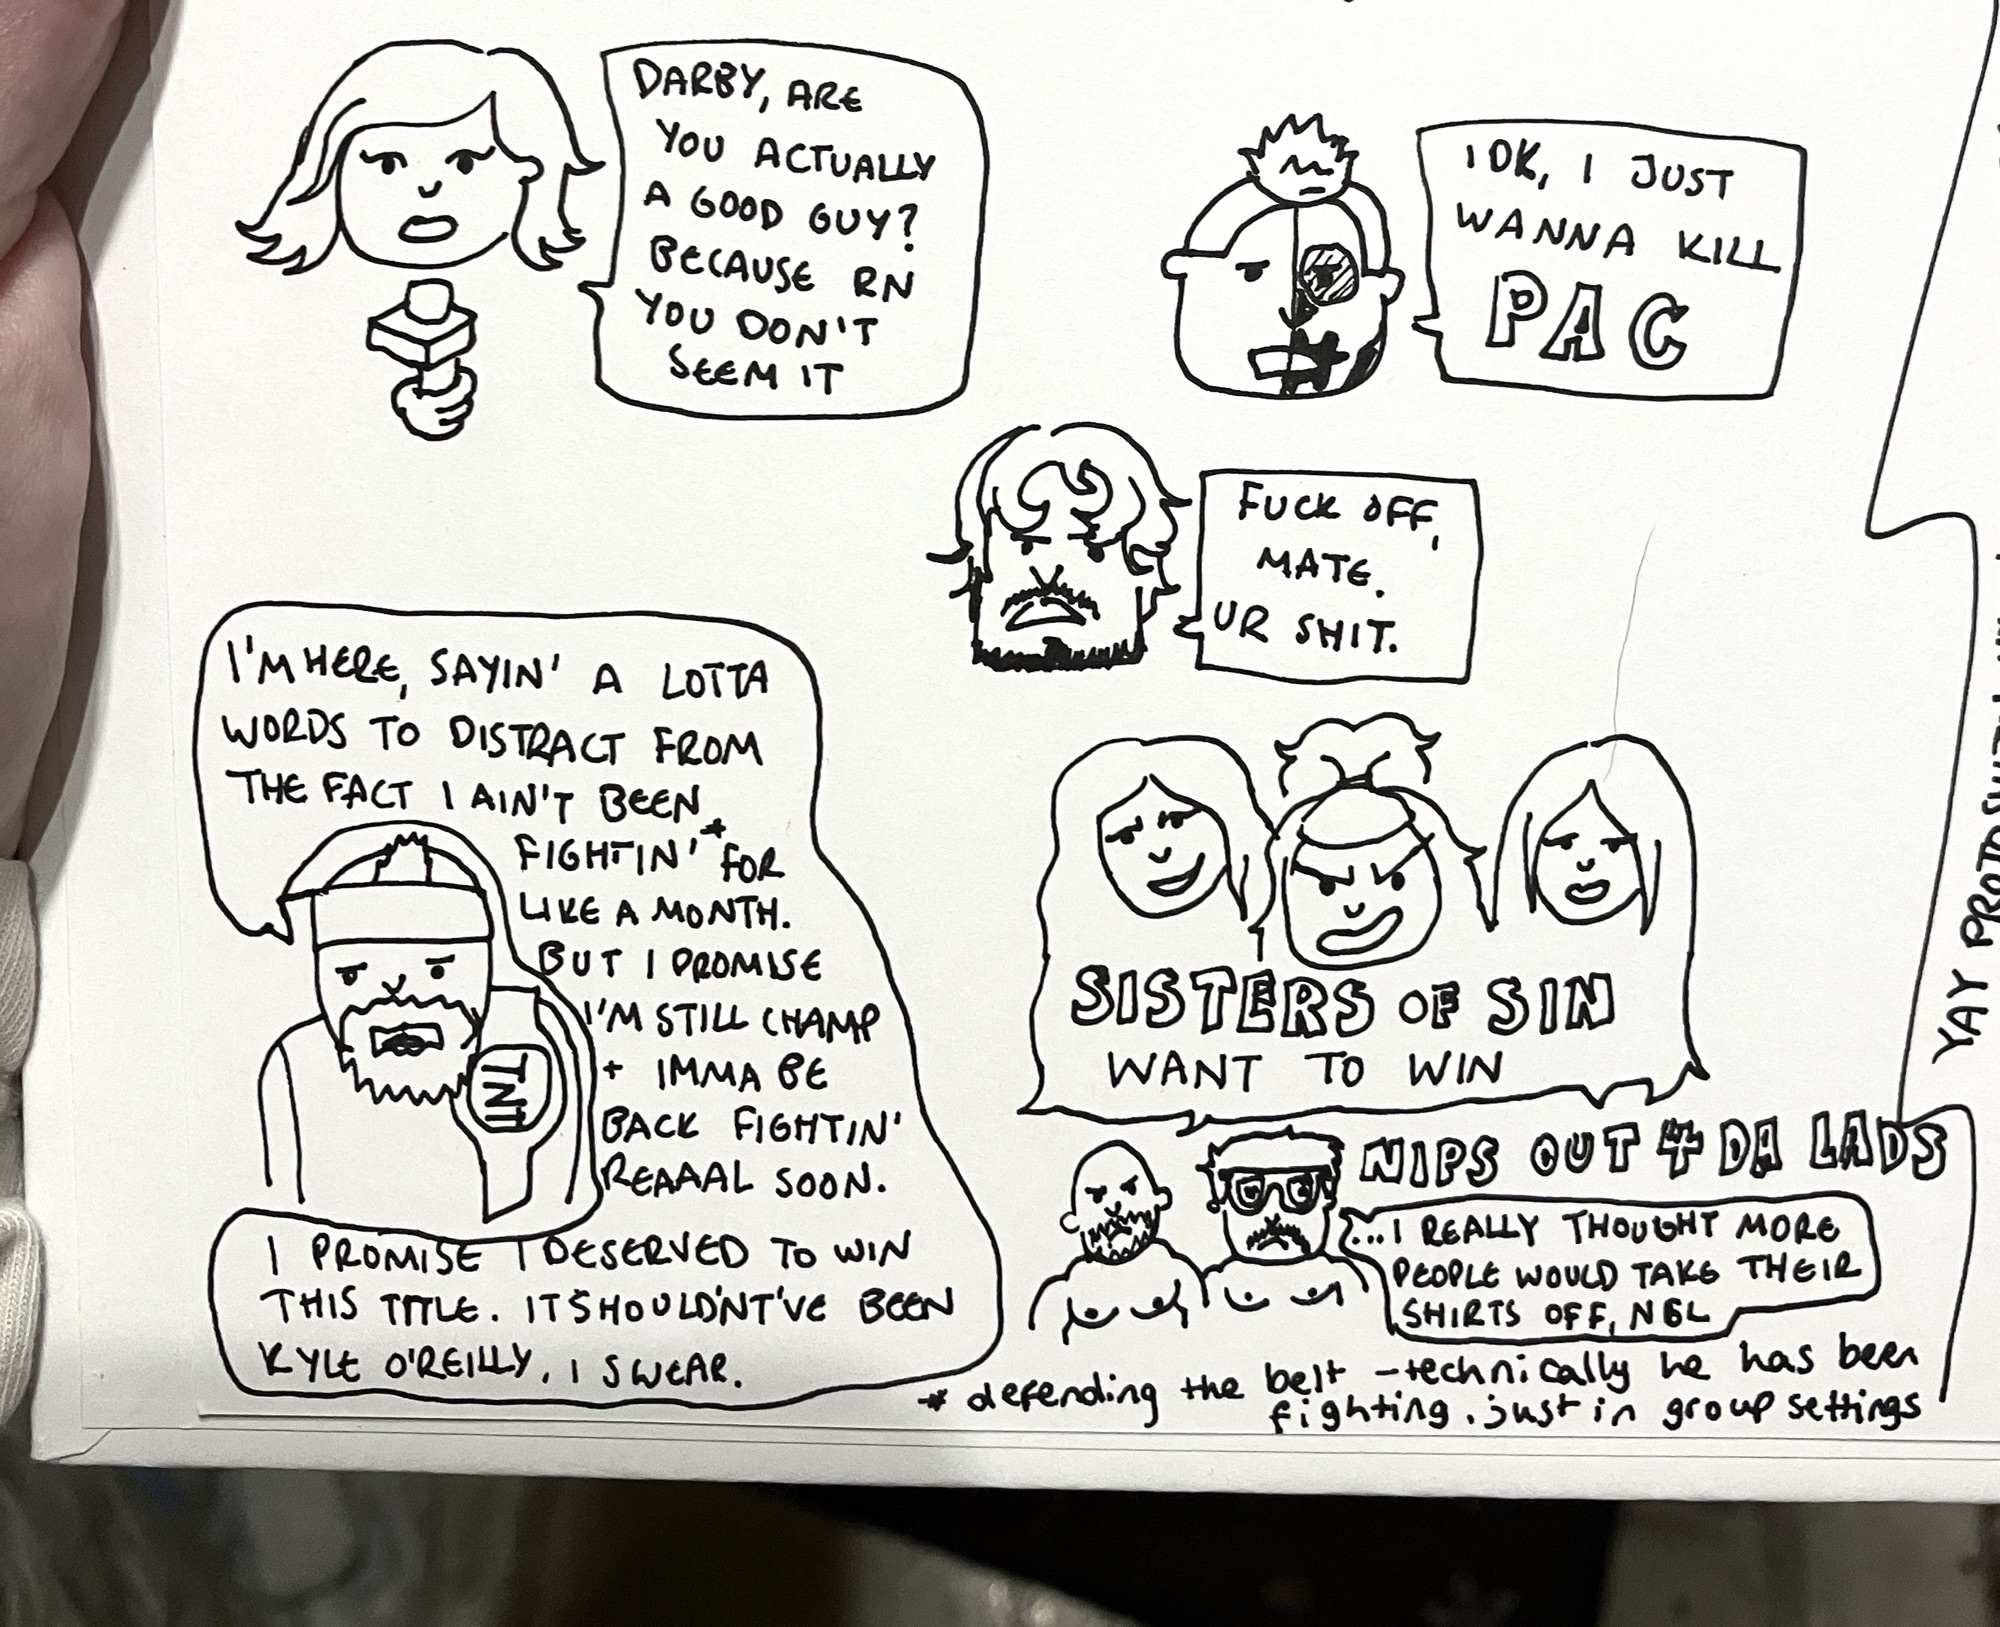 DARBY, ARE
YOU ACTUALLY
A GOOD GUY?
BECAUSE RN
YOU DON'T
SEEM IT
IDK, I JUST
WANNA KILL
PAC
FUCK OFF,
MATE.
UR SHIT.
I'M HERE, SAYIN' A LOTTA
WORDS TO DISTRACT FROM
THE FACT I AIN'T BEEN
FIGHTIN'* FOR
LIKE A MONTH.
BUT I PROMISE
I'M STILL CHAMP
+ IMMA BE
BACK FIGHTIN'
REAAAL SOON.
I PROMISE I DESERVED TO WIN
THIS TITLE. IT SHOULD'NT'VE BEEN
KYLE O'REILLY, I SWEAR.
TNT
SISTERS OF SIN
WANT TO WIN
NIPS OUT 4 DA LADS
...I REALLY THOUGHT MORE
PEOPLE WOULD TAKE THEIR
SHIRTS OFF, NGL
* defending the belt - technically he has been
fighting. just in group settings
YAY